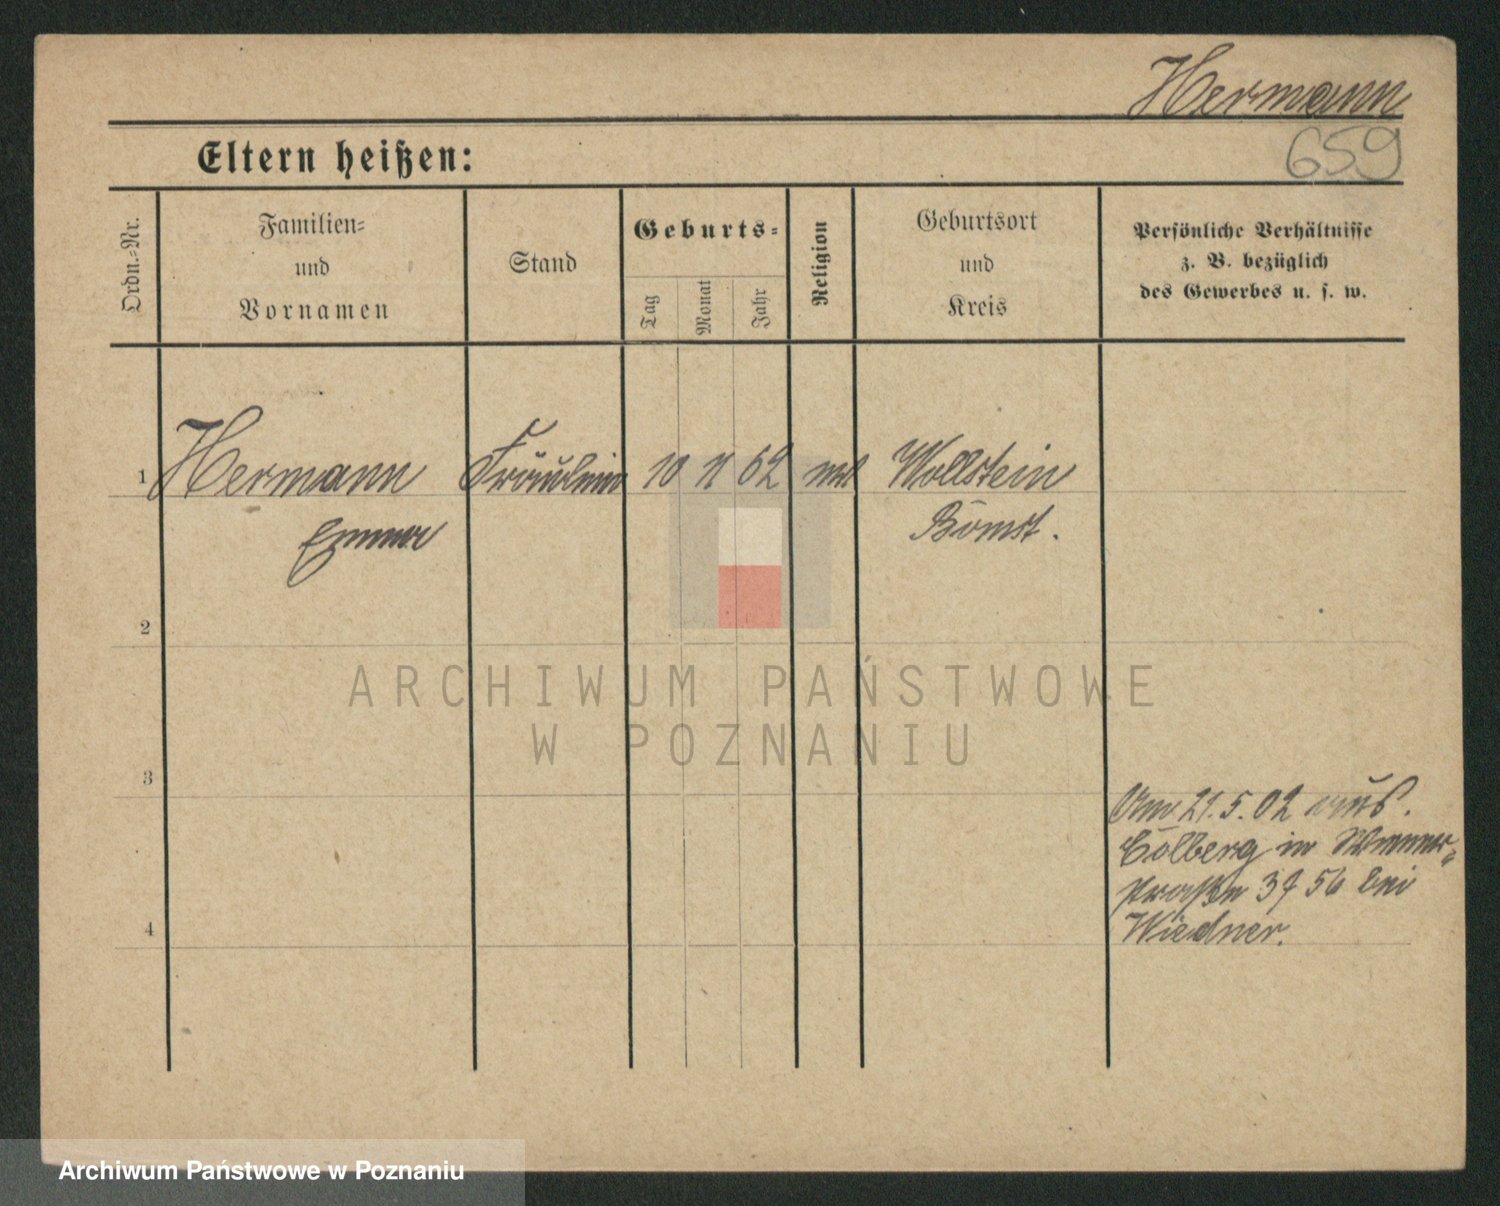 Hermann
659
Eltern heißen:
Ordn.-Nr.
Familien-
und
Vornamen
Stand
Geburts-
Tag
Monat
Jahr
Religion
Geburtsort
und
Kreis
Persönliche Verhältnisse
z. B. bezüglich
des Gewerbes u. s. w.
1 Hermann Fräulein 10 11 62 Wollstein
Emma Bomst.
2
3
4
Am 21.5.02 aus
Colberg in
straße 37 bei
Wiedner.
ARCHIWUM PAŃSTWOWE
W POZNANIU
Archiwum Państwowe w Poznaniu